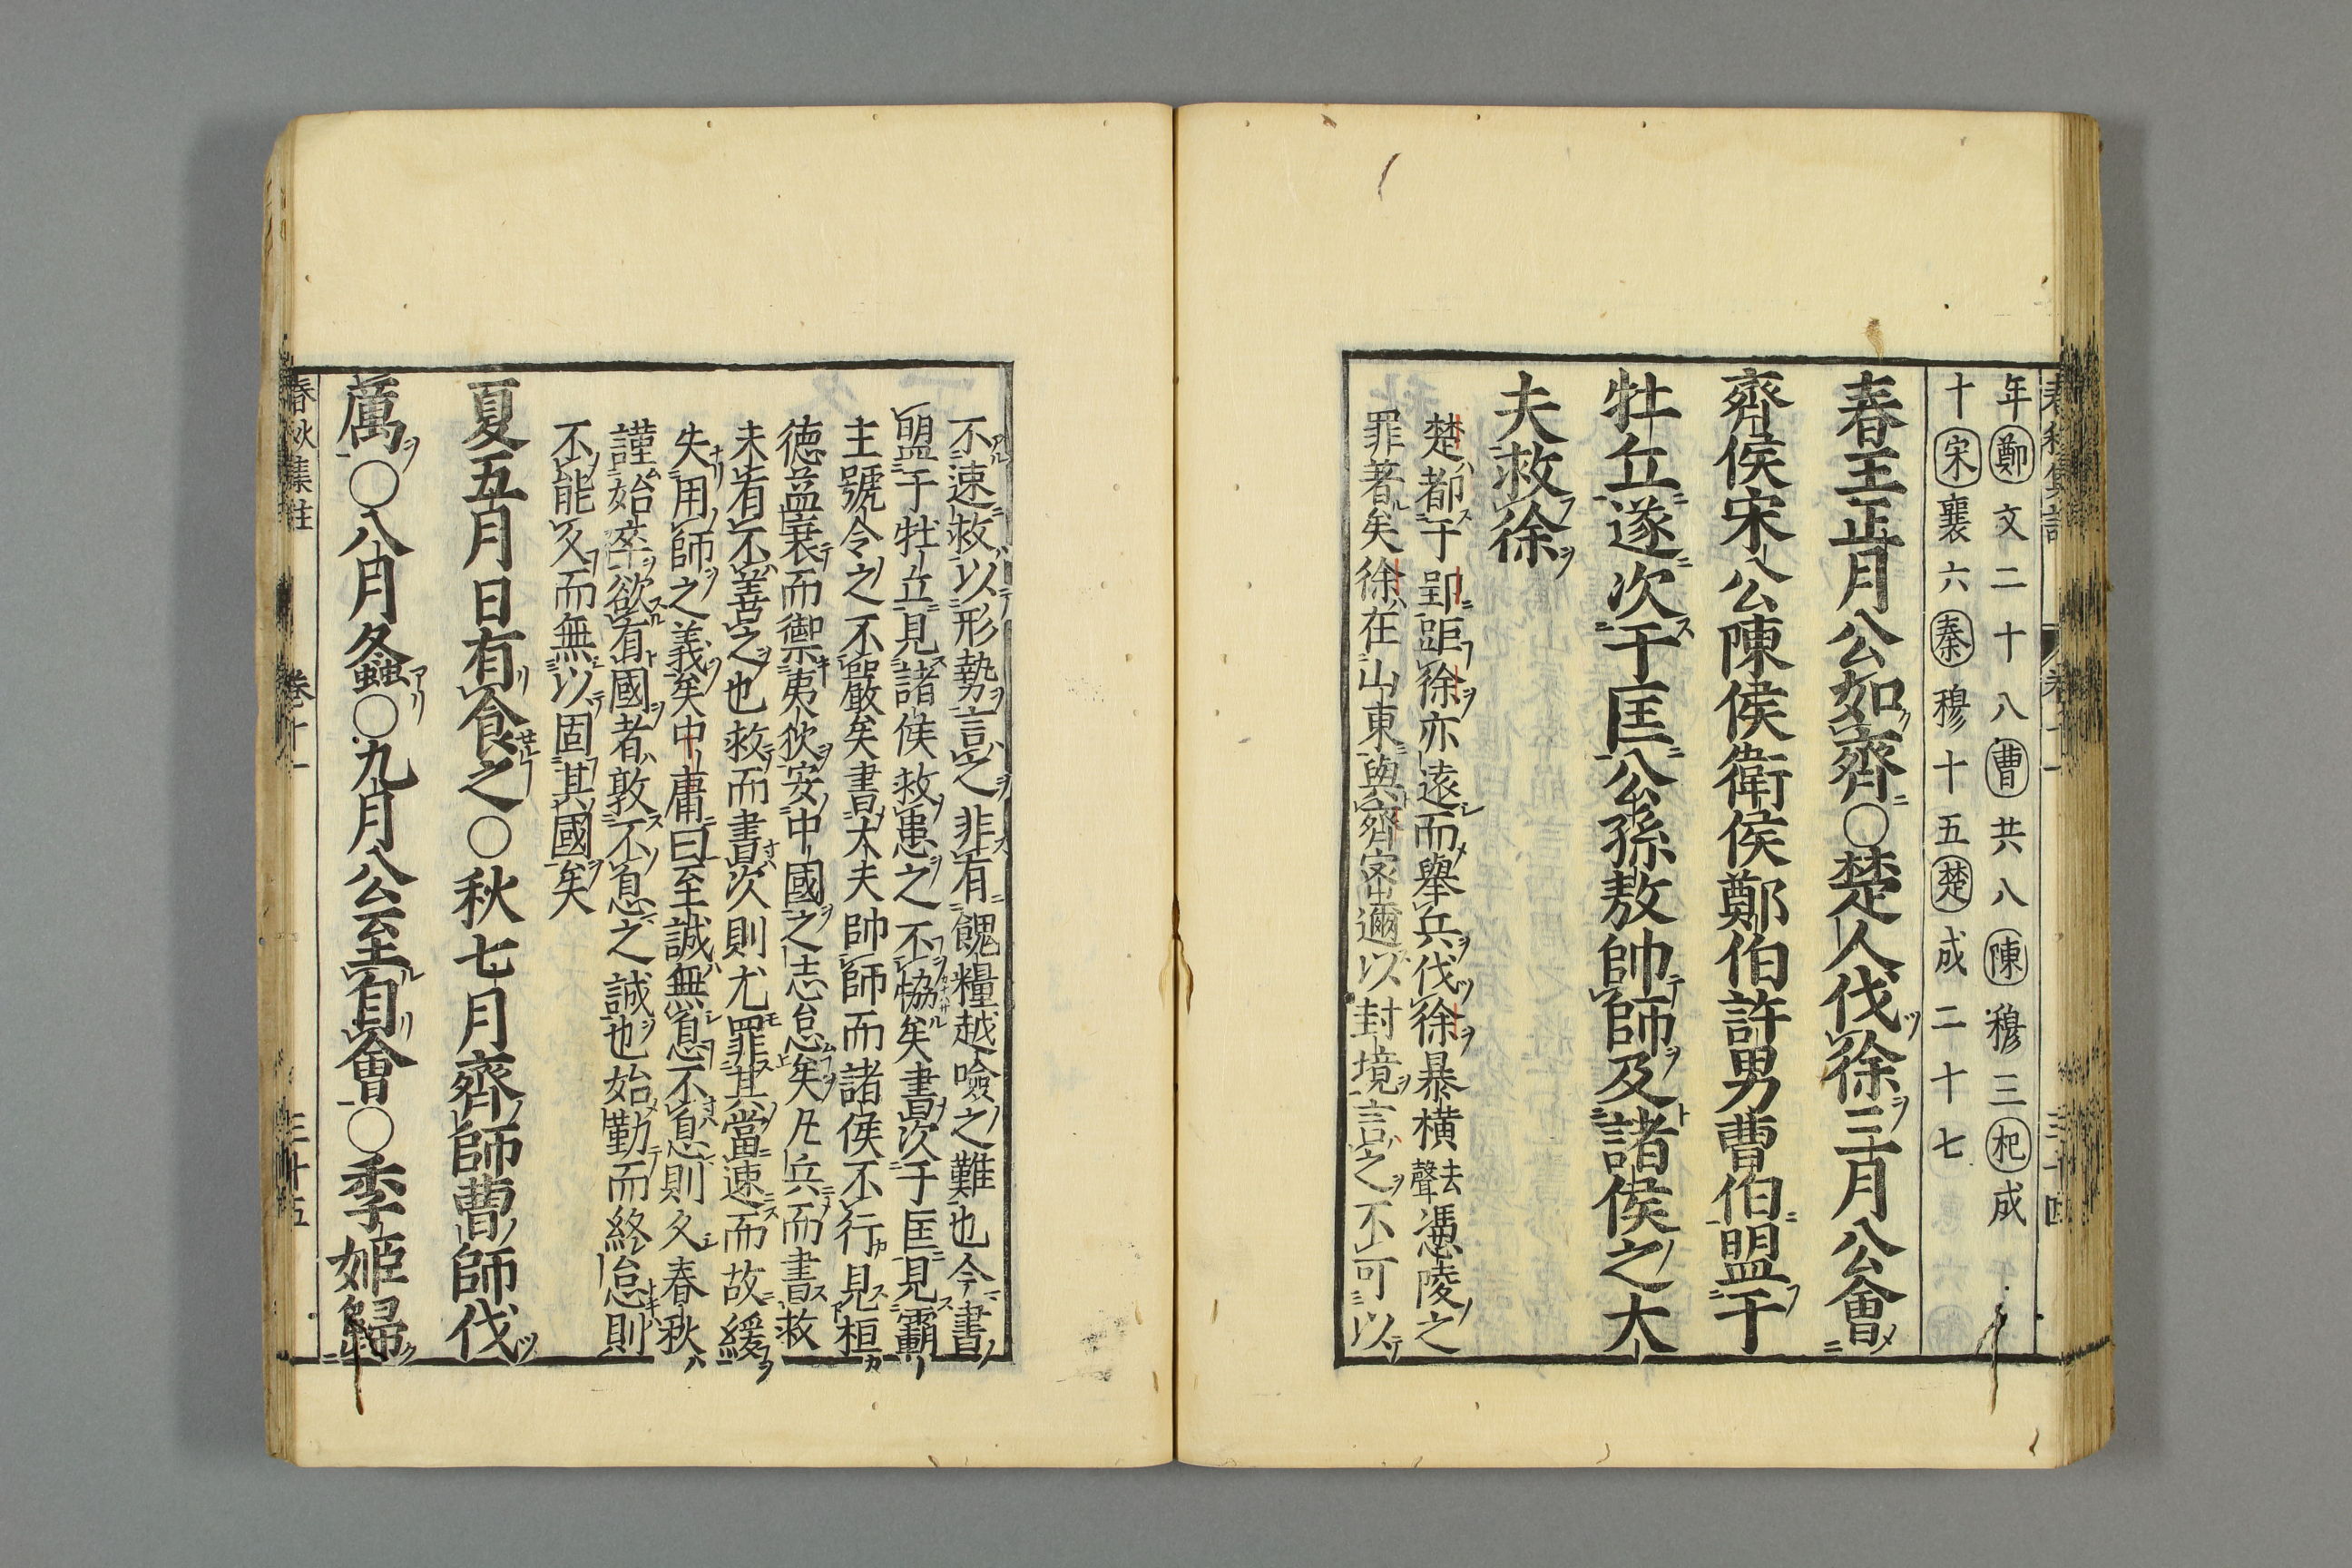 年鄭文二十八曹共八陳穆三杞成
十宋襄六秦穆十五楚成二十七
春王正月公如齊○楚人伐徐三月公會
齊侯宋公陳侯衛侯鄭伯許男曹伯盟于
牡丘遂次于匡公孫敖帥師及諸侯之大
夫救徐
楚都于郢距徐亦遠而舉兵伐徐暴橫去聲憑陵之
罪著矣徐在山東與齊密邇以封境言之不可以
不速救以形勢言之非有餽糧越險之難也今書
盟于牡丘見諸侯救患之不協矣書次于匡見霸
主號令之不嚴矣書大夫帥師而諸侯不行見桓
徳益衰而禦夷狄安中國之志怠矣凡兵而書救
未有不善之也救而書次則尤罪其當速而故緩
失用師之義矣中庸曰至誠無息不息則久春秋
謹始卒欲有國者敦不息之誠也始勤而終怠則
不能久而無以固其國矣
夏五月日有食之○秋七月齊師曹師伐
厲○八月螽○九月公至自會○季姬歸
春秋集註 卷十一 三十五